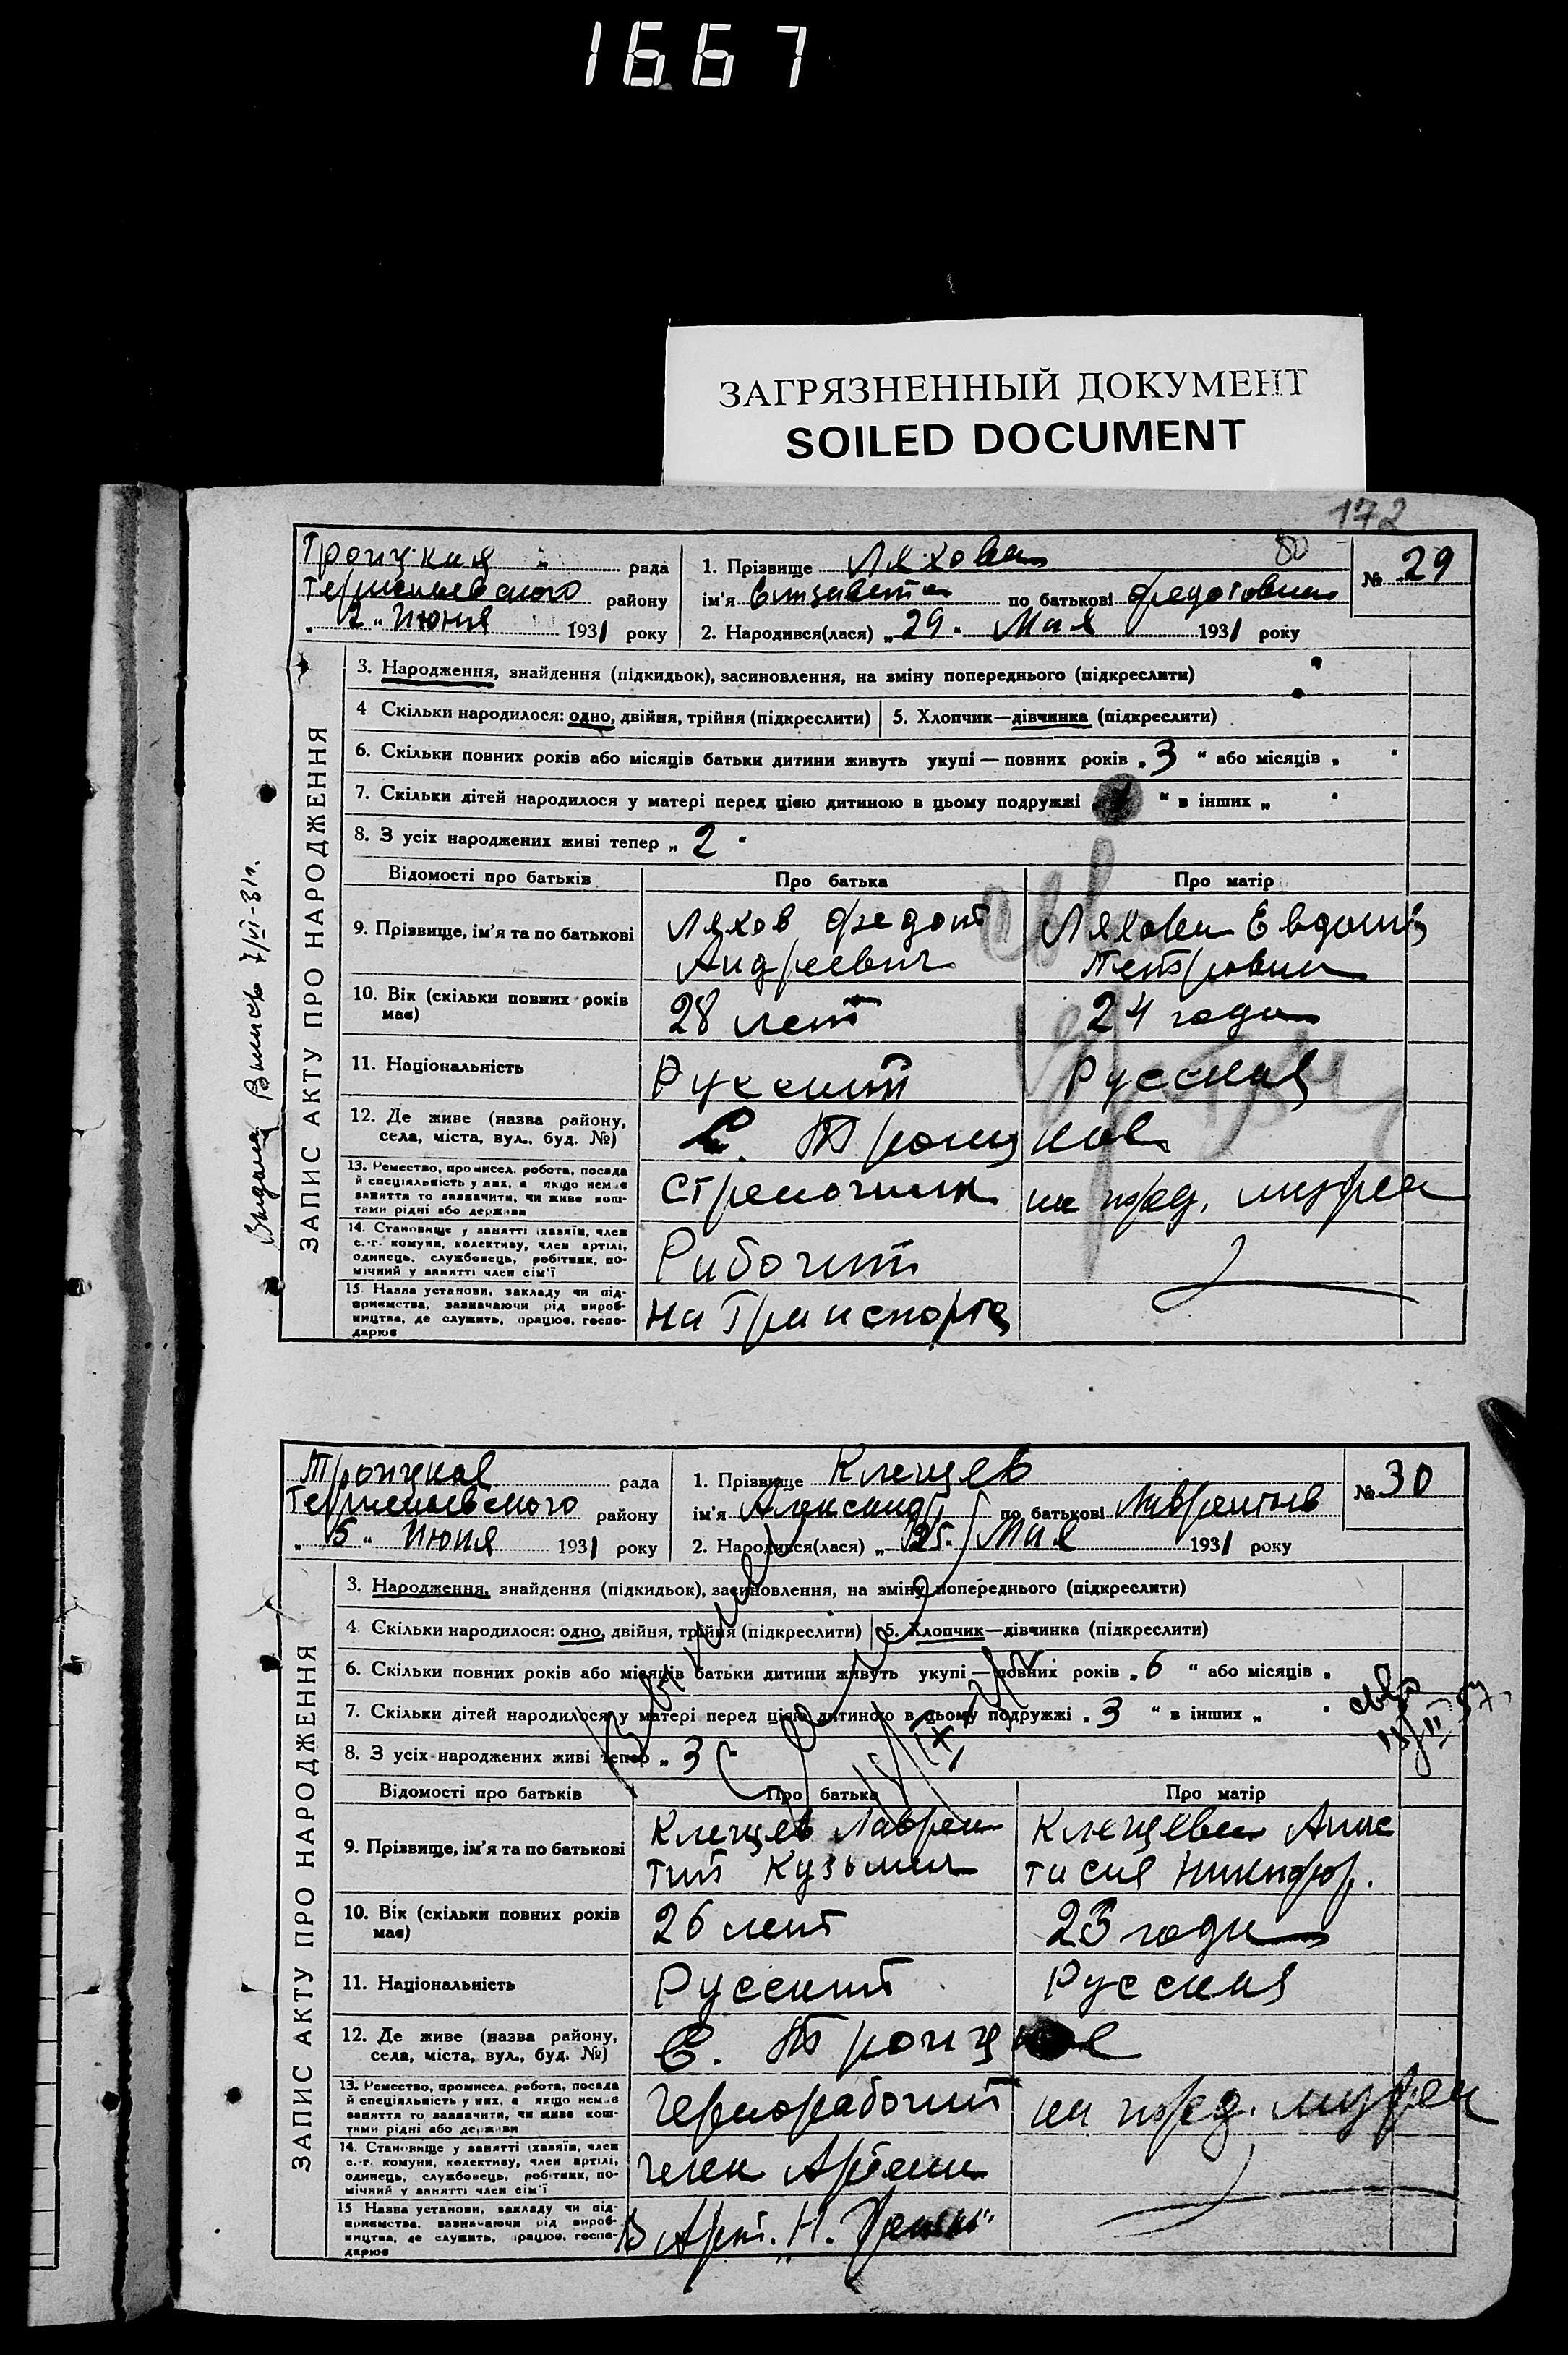 1667
ЗАГРЯЗНЕННЫЙ ДОКУМЕНТ
SOILED DOCUMENT
172
80
Троицкая рада
району
„ 2 “ Июня 1931 року
1. Прізвище Ляхова
ім'я Елизавета по батькові Федотовна
2. Народився(лася) „ 29 “ Мая 1931 року
№ 29
ЗАПИС АКТУ ПРО НАРОДЖЕННЯ
3. Народження, знайдення (підкидьок), засиновлення, на зміну попереднього (підкреслити)
4 Скільки народилося: одно, двійня, трійня (підкреслити) 5. Хлопчик—дівчинка (підкреслити)
6. Скільки повних років або місяців батьки дитини живуть укупі — повних років „ 3 “ або місяців „
7. Скільки дітей народилося у матері перед цією дитиною в цьому подружжі “ в інших „
8. З усіх народжених живі тепер „ 2 “
Відомості про батьків Про батька Про матір
9. Прізвище, ім'я та по батькові
Ляхов Федот
Андреевич
Ляхова
Петровна
10. Вік (скільки повних років має)
28 лет 24 года
11. Національність
Русский Русская
12. Де живе (назва району,
села, міста, вул., буд. №)
С. Троицкое
13. Ремество, промисел, робота, посада
й спеціяльність у них, а якщо немає
заняття то зазначити, чи живе кош-
тами рідні або держави
Стрелочник на ижд. мужа
14. Становище у занятті (хазяїн, член
с.-г. комуни, колективу, член артілі,
одинець, службовець, робітник, по-
мічний у занятті член сім'ї
Рабочий
15. Назва установи, закладу чи під-
приємства, зазначаючи рід вироб-
ництва, де служить, працює, госпо-
дарює
На Транспорте
Выдана Выпись 7/VI-31г.
Троицкая рада
району
„ 5 “ Июня 1931 року
1. Прізвище Клещев
ім'я Александр по батькові Лаврентьев
2. Народився(лася) „ 25. Мая 1931 року
№ 30
ЗАПИС АКТУ ПРО НАРОДЖЕННЯ
3. Народження, знайдення (підкидьок), засиновлення, на зміну попереднього (підкреслити)
4. Скільки народилося: одно, двійня, трійня (підкреслити) 5. Хлопчик—дівчинка (підкреслити)
6. Скільки повних років або місяців батьки дитини живуть укупі — повних років „ 6 “ або місяців „
7. Скільки дітей народилося у матері перед цією дитиною в цьому подружжі „ 3 “ в інших „
8. З усіх народжених живі тепер „ 3
Відомості про батьків Про батька Про матір
9. Прізвище, ім'я та по батькові
Клещев Лаврен
тий Кузьмич
Клещева Анас
тасия Никифор.
10. Вік (скільки повних років має)
26 лет 23 года
11. Національність
Русский Русская
12. Де живе (назва району,
села, міста, вул., буд. №)
С. Троицкое
13. Ремество, промисел, робота, посада
й спеціяльність у них, а якщо немає
заняття то зазначити, чи живе кош-
тами рідні або держави
Чернорабочий на ижд. мужа
14. Становище у занятті (хазяїн, член
с.-г. комуни, колективу, член артілі,
одинець, службовець, робітник, по-
мічний у занятті член сім'ї
член Артели
15 Назва установи, закладу чи під-
приємства, зазначаючи рід вироб-
ництва, де служить, працює, госпо-
дарює
В Арт. „Н.